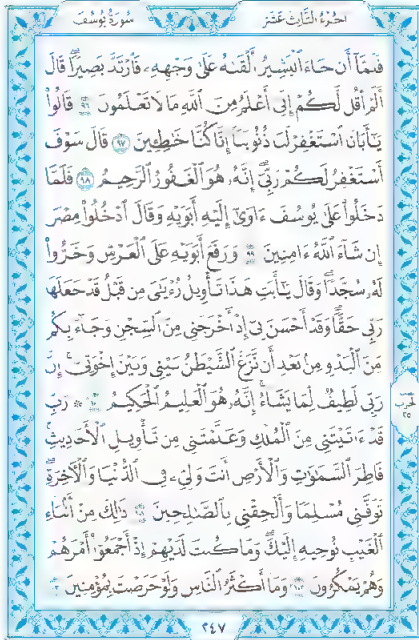 الجزء الثالث عشر
سورة يوسف
فَلَمَّآ أَن جَآءَ ٱلْبَشِيرُ أَلْقَىٰهُ عَلَىٰ وَجْهِهِۦ فَٱرْتَدَّ بَصِيرًا ۖ قَالَ
أَلَمْ أَقُل لَّكُمْ إِنِّىٓ أَعْلَمُ مِنَ ٱللَّهِ مَا لَا تَعْلَمُونَ ٩٦ قَالُوا۟
يَٰٓأَبَانَا ٱسْتَغْفِرْ لَنَا ذُنُوبَنَآ إِنَّا كُنَّا خَٰطِـِٔينَ ٩٧ قَالَ سَوْفَ
أَسْتَغْفِرُ لَكُمْ رَبِّىٓ ۖ إِنَّهُۥ هُوَ ٱلْغَفُورُ ٱلرَّحِيمُ ٩٨ فَلَمَّا
دَخَلُوا۟ عَلَىٰ يُوسُفَ ءَاوَىٰٓ إِلَيْهِ أَبَوَيْهِ وَقَالَ ٱدْخُلُوا۟ مِصْرَ
إِن شَآءَ ٱللَّهُ ءَامِنِينَ ٩٩ وَرَفَعَ أَبَوَيْهِ عَلَى ٱلْعَرْشِ وَخَرُّوا۟
لَهُۥ سُجَّدًا ۖ وَقَالَ يَٰٓأَبَتِ هَٰذَا تَأْوِيلُ رُءْيَٰىَ مِن قَبْلُ قَدْ جَعَلَهَا
رَبِّى حَقًّا ۖ وَقَدْ أَحْسَنَ بِىٓ إِذْ أَخْرَجَنِى مِنَ ٱلسِّجْنِ وَجَآءَ بِكُم
مِّنَ ٱلْبَدْوِ مِنۢ بَعْدِ أَن نَّزَغَ ٱلشَّيْطَٰنُ بَيْنِى وَبَيْنَ إِخْوَتِىٓ ۚ إِنَّ
رَبِّى لَطِيفٌ لِّمَا يَشَآءُ ۚ إِنَّهُۥ هُوَ ٱلْعَلِيمُ ٱلْحَكِيمُ ١٠٠ ۞ رَبِّ
قَدْ ءَاتَيْتَنِى مِنَ ٱلْمُلْكِ وَعَلَّمْتَنِى مِن تَأْوِيلِ ٱلْأَحَادِيثِ ۚ
فَاطِرَ ٱلسَّمَٰوَٰتِ وَٱلْأَرْضِ أَنتَ وَلِىِّۦ فِى ٱلدُّنْيَا وَٱلْءَاخِرَةِ ۖ
تَوَفَّنِى مُسْلِمًا وَأَلْحِقْنِى بِٱلصَّٰلِحِينَ ١٠١ ذَٰلِكَ مِنْ أَنۢبَآءِ
ٱلْغَيْبِ نُوحِيهِ إِلَيْكَ ۖ وَمَا كُنتَ لَدَيْهِمْ إِذْ أَجْمَعُوٓا۟ أَمْرَهُمْ
وَهُمْ يَمْكُرُونَ ١٠٢ وَمَآ أَكْثَرُ ٱلنَّاسِ وَلَوْ حَرَصْتَ بِمُؤْمِنِينَ ١٠٣
الحزب
٢٥
٢٤٧